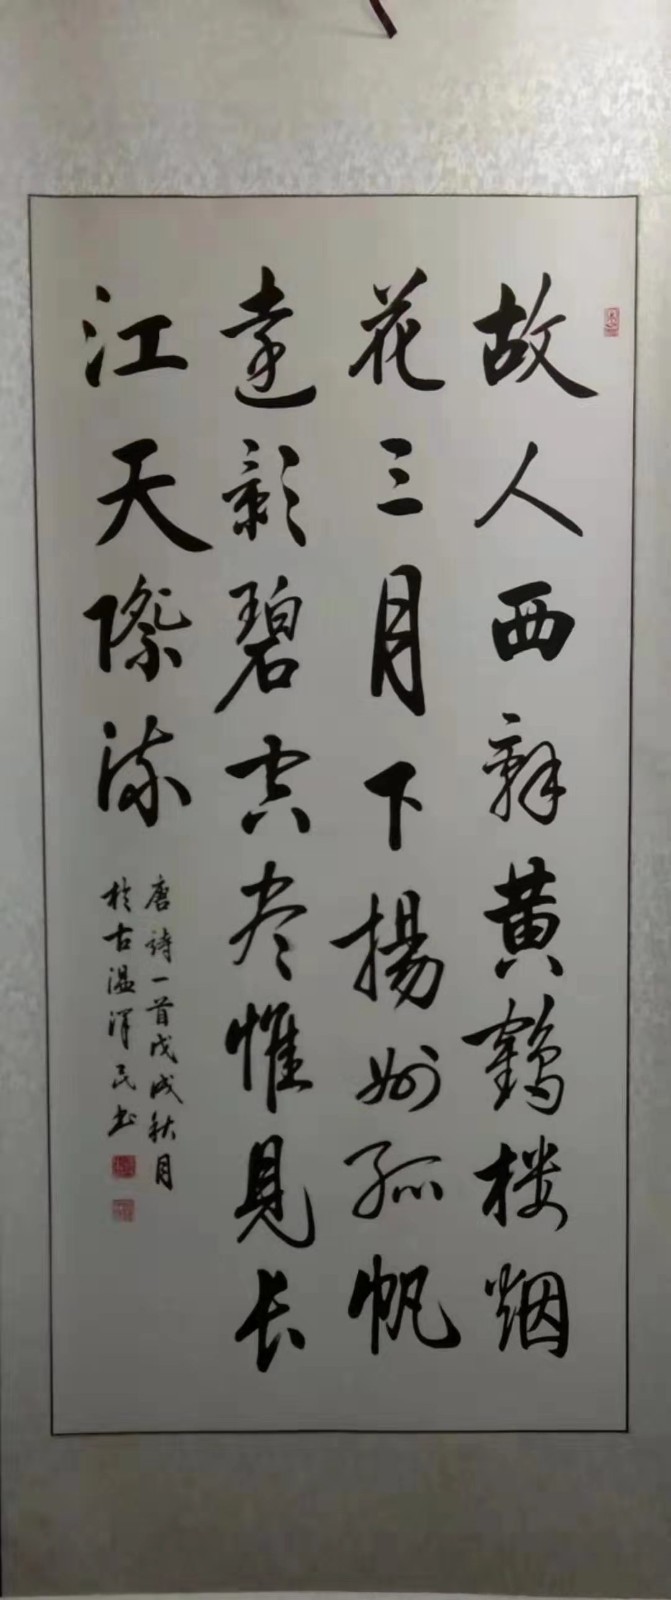 故人西辞黄鹤楼烟
花三月下揚州孤帆
遠影碧空尽惟見长
江天際流
唐诗一首戊戌秋月
於古温洋民书